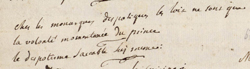 chez les monarques despotiques les loix ne sont que
la volonté momentanée du prince
le despotisme